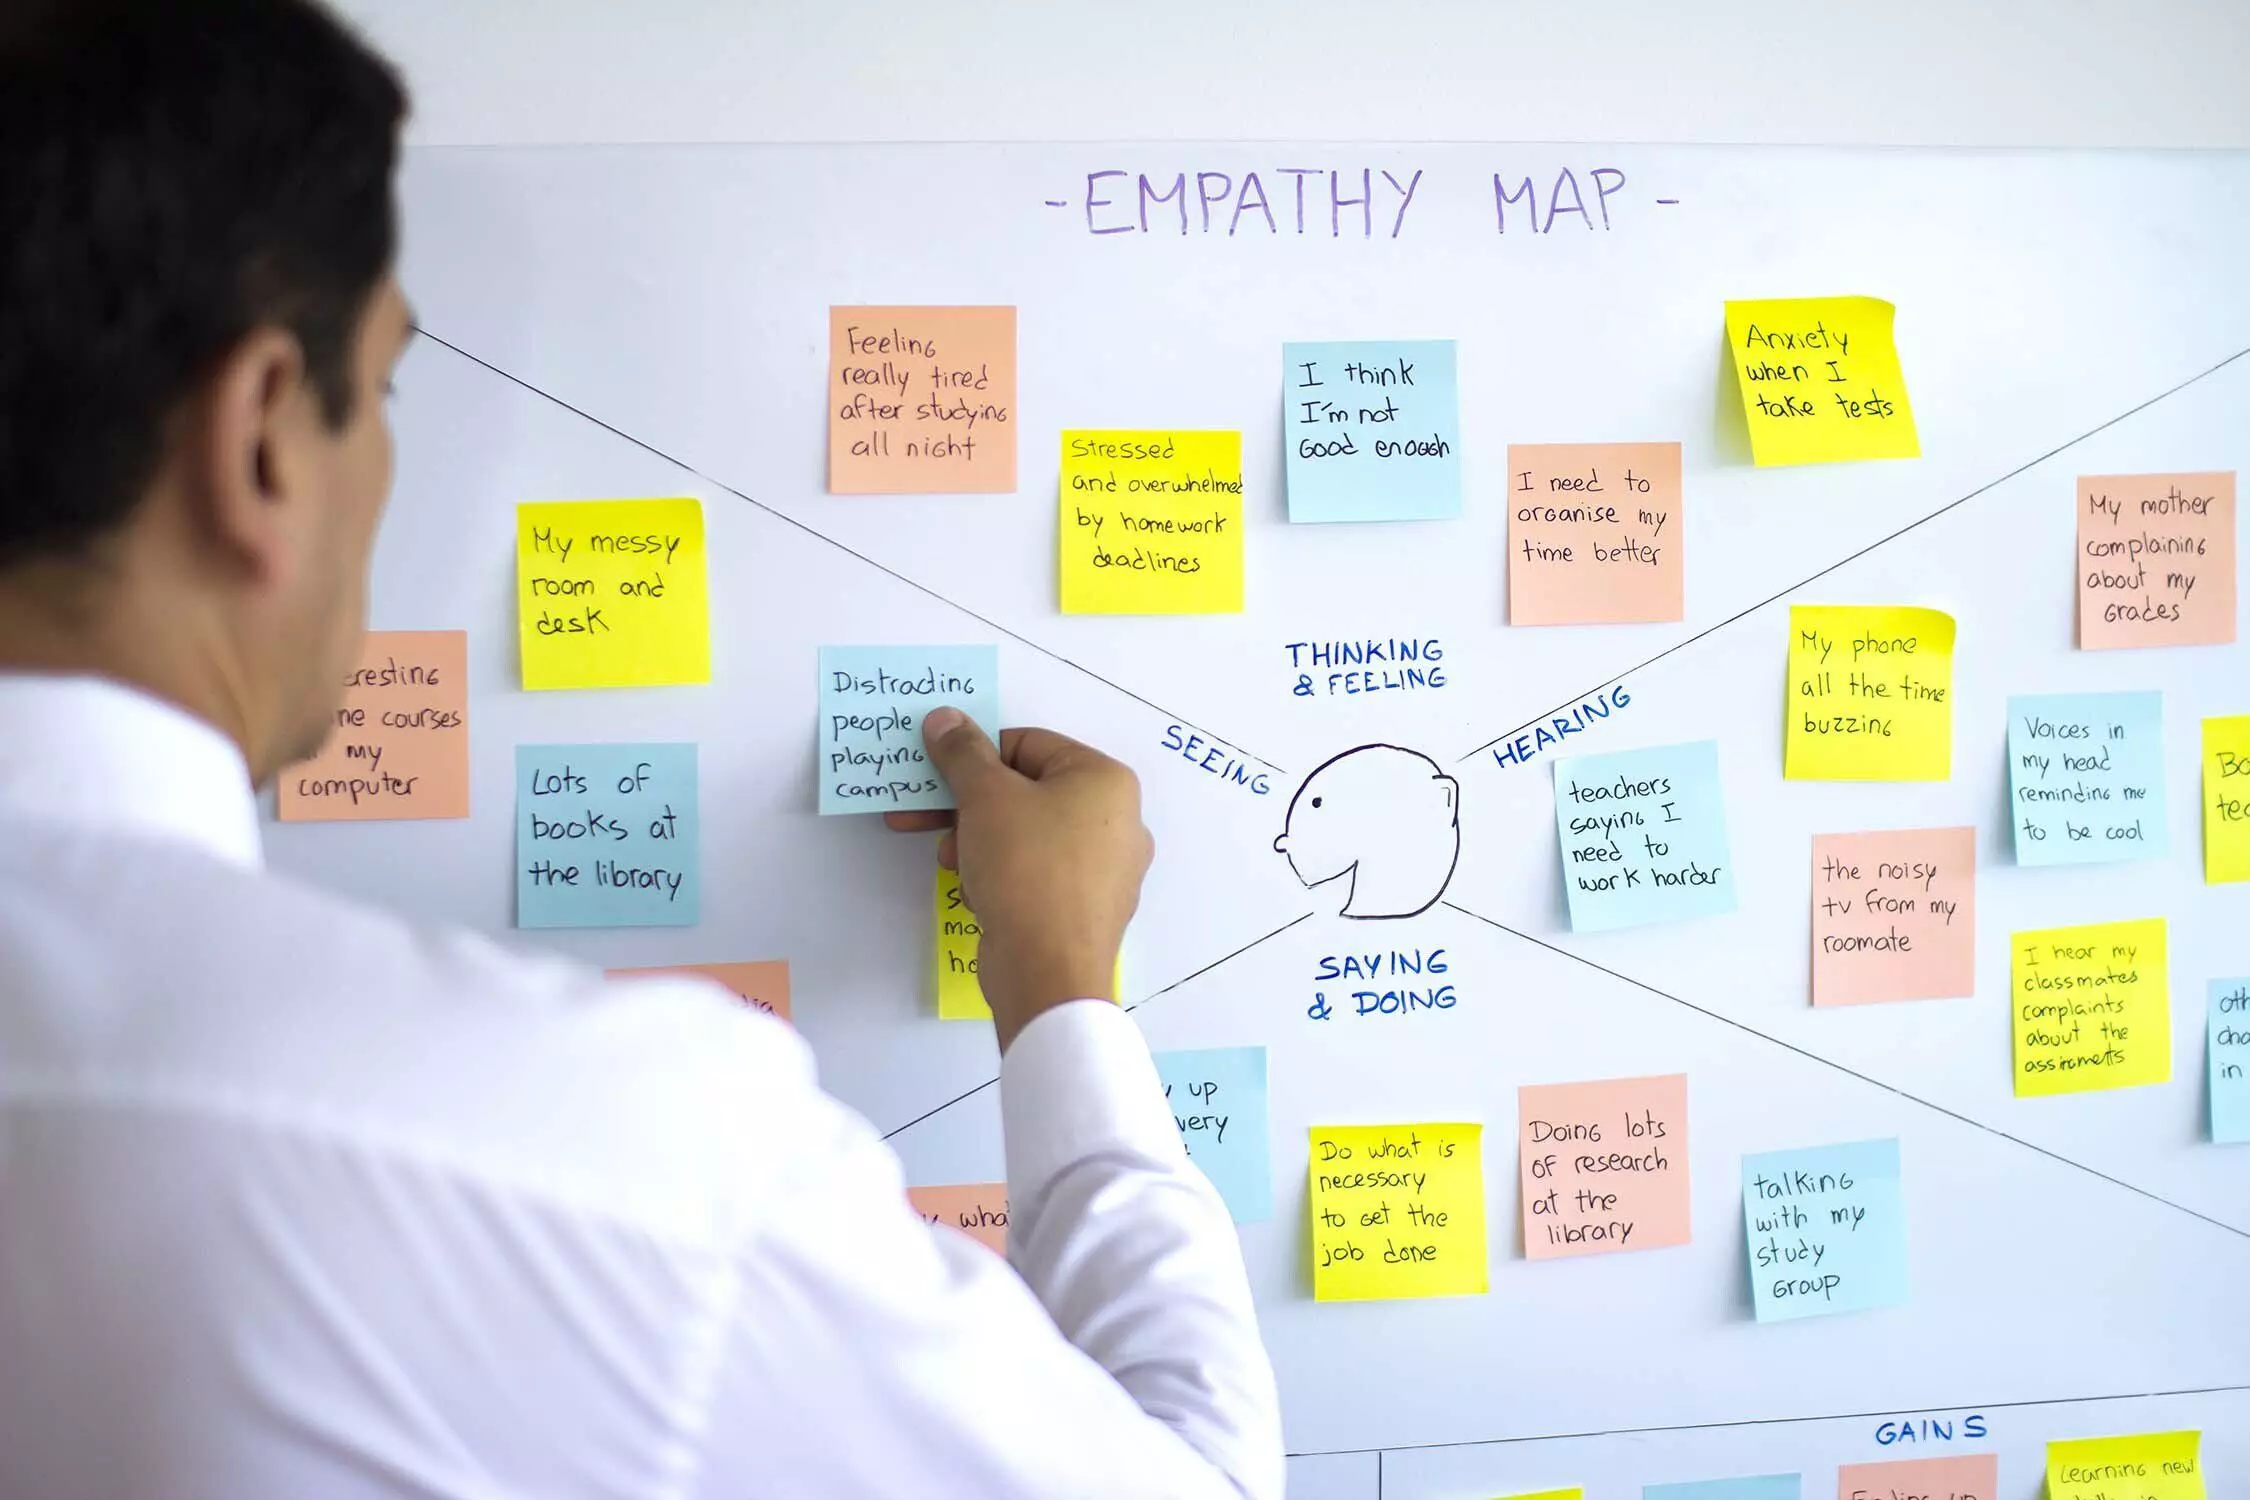 - EMPATHY MAP -
Feeling
really tired
after studying
all night
Stressed
and overwhelmed
by homework
deadlines
I think
I'm not
Good enough
I need to
organise my
time better
Anxiety
when I
take tests
THINKING
& FEELING
SEEING
My messy
room and
desk
courses
my
computer
Lots of
books at
the library
Distracting
people
playing
campus
HEARING
My mother
complaining
about my
Grades
My phone
all the time
buzzing
Voices in
my head
reminding me
to be cool
teachers
saying I
need to
work harder
the noisy
tv from my
roomate
I hear my
classmates
complaints
about the
in
SAYING
& DOING
up
Do what is
necessary
to get the
job done
Doing lots
of research
at the
library
talking
with my
study
Group
GAINS
Learning new